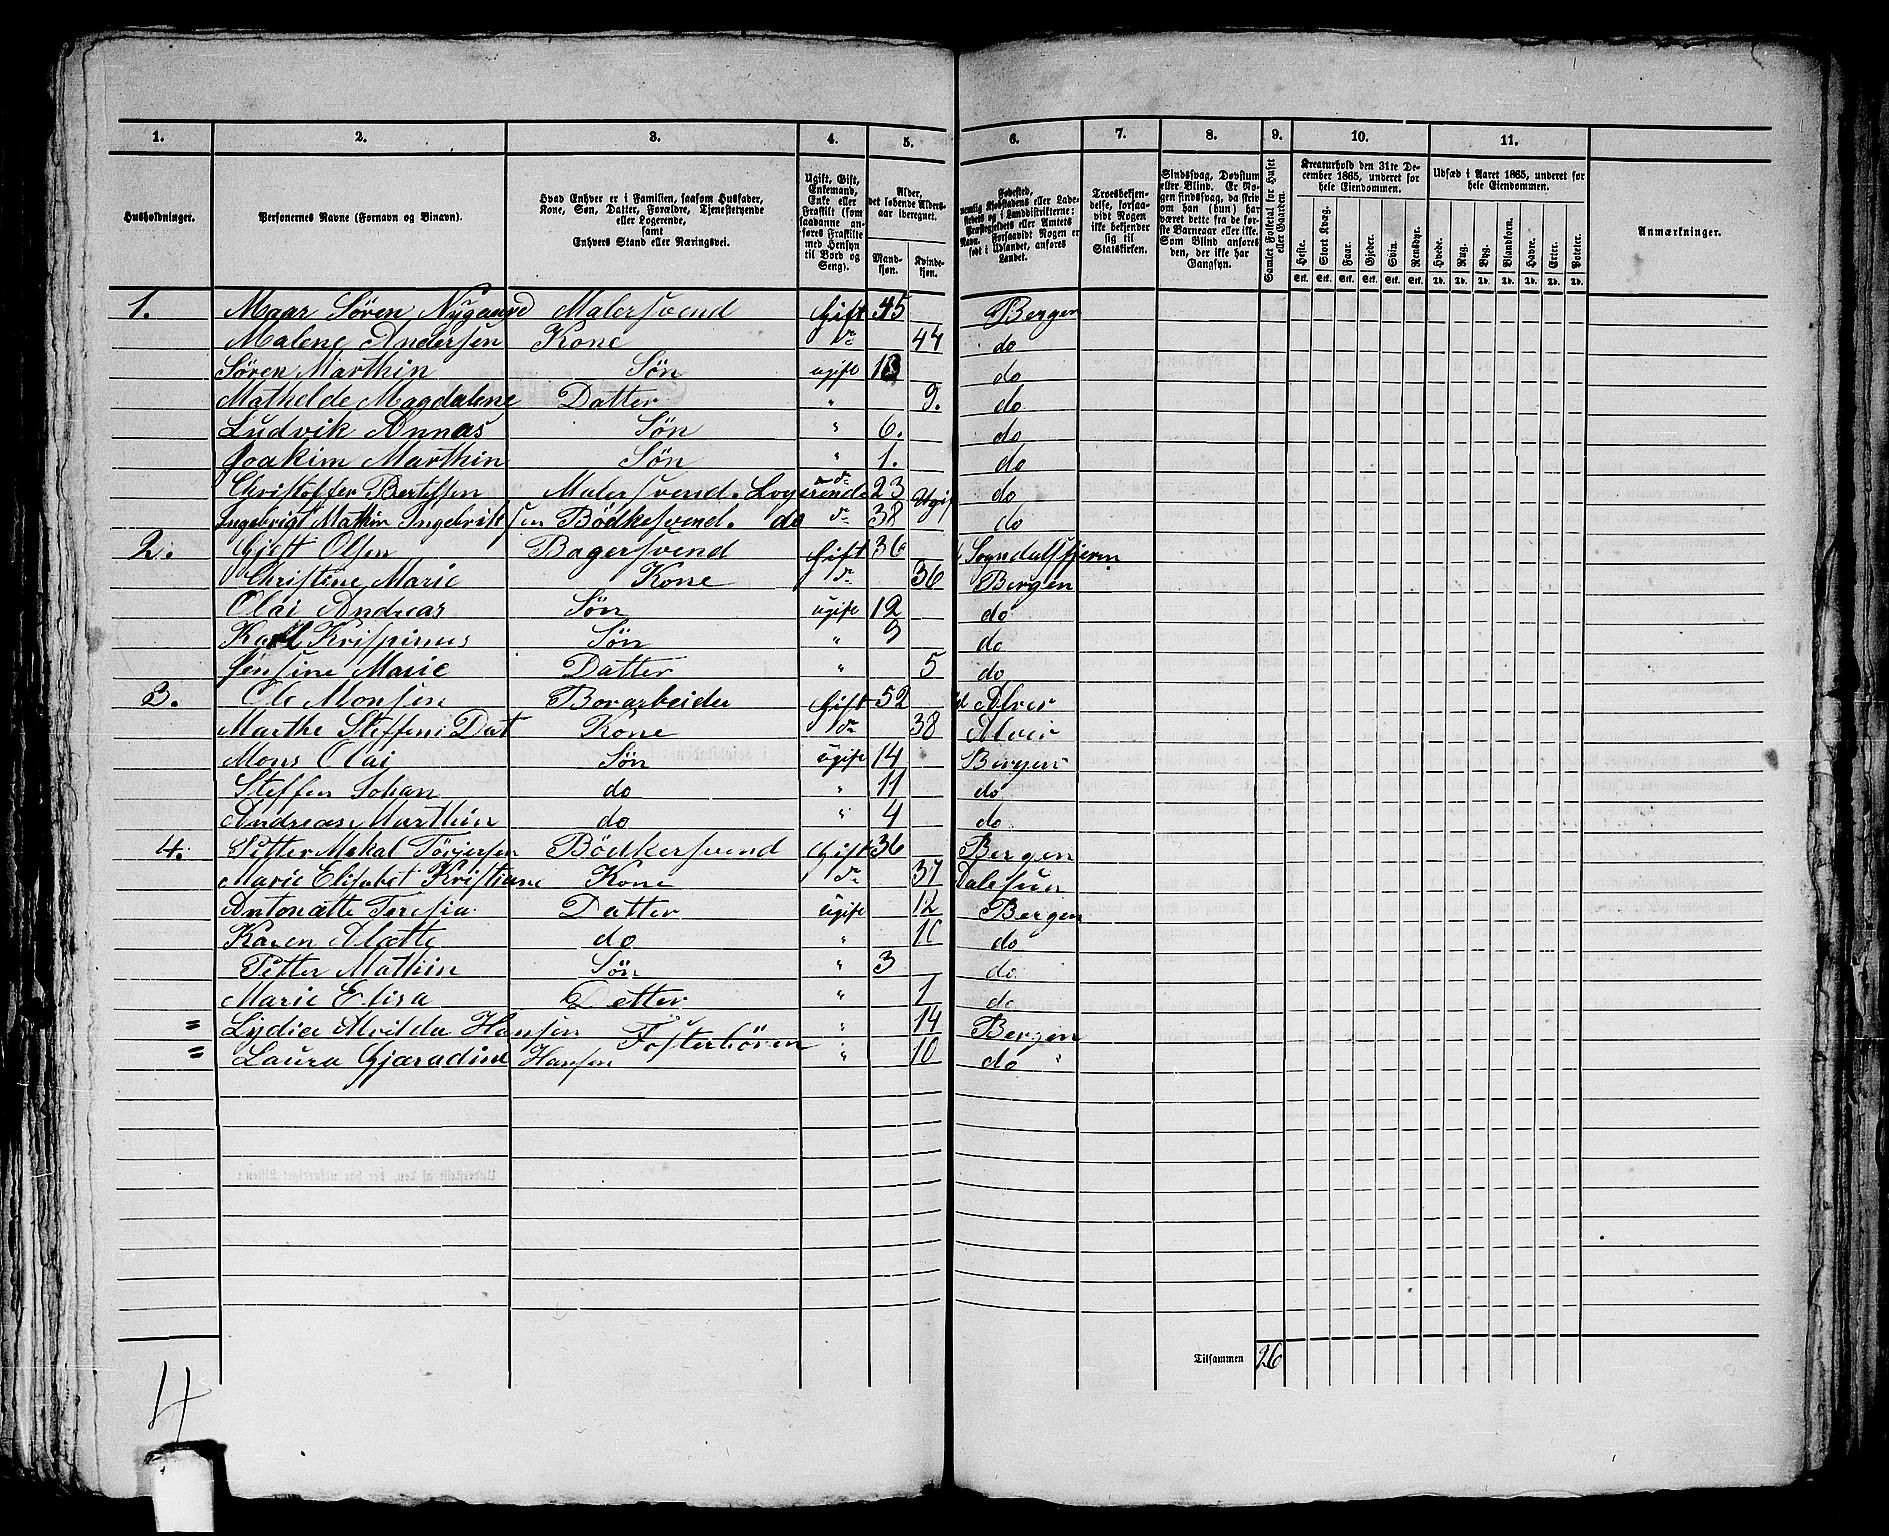 1. 2. 3. 4. 5. 6. 7. 8. 9. 10. 11.
Husholdninger.
Personernes Navne (Fornavn og Binavn).
Hvad Enhver er i Familien, saasom Husfader, Kone, Søn, Datter, Forældre, Tjenestetyende eller Logerende, samt Enhvers Stand eller Næringsvei.
Ugift, Gift, Enkemand, Enke eller Fraskilt (som saadanne anføres Fraskilte med Hensyn til Bord og Seng).
Alder, det løbende Aldersaar iberegnet.
Mandkjøn. Kvindekjøn.
Fødested, nemlig Kjøbstadens eller Ladestedets og i Landdistrikterne: Præstegjeldets eller Amtets Navn. Forsaavidt Nogen er født i Udlandet, anføres Landet.
Troesbekjendelse, forsaavidt Nogen ikke bekjender sig til Statskirken.
Sindssvag, Døvstum eller Blind. Er Nogen sindssvag, da skriv om han (hun) har været dette fra de første Barneaar eller ikke. Som Blind anføres den, der ikke har Gangsyn.
Samlet Folketal for Huset eller Gaarden.
Kreaturhold den 31te December 1865, underet for hele Eiendommen.
Heste. Stort Kvæg. Faar. Gjeder. Svin. Rensdyr.
Udsæd i Aaret 1865, underet for hele Eiendommen.
Hvede. Rug. Byg. Blandkorn. Havre. Erter. Poteter.
Anmærkninger.
Stk. Stk. Stk. Stk. Stk. Stk. Td. Td. Td. Td. Td. Td. Td.
1. Maar Søren Nygaard Malersvend Gift 45 Bergen
Malene Andersen Kone do 44 do
Søren Marthin Søn ugift do
Mathelde Magdalene Datter " 9. do
Ludvik Annas Søn " 6. do
Joakim Marthin Søn " 1. do
Christoffer Bertessen Malersvend. Logerende do 23 Ugift do
Ingebrigt Mathin Ingebriksen Bödkesvend. do do 38 do
2. Gjest Olsen Bagersvend Gift 36 Sogndalsfjeren
Christene Marie Kone do 36 Bergen
Olai Andreas Søn ugift 12 do
Karl Krispinus Søn " 9 do
Jensine Marie Datter " 5 do
3. Ole Monsen Borarbeider Gift 52 Alver
Marthe Steffens Dat Kone do 38 Alver
Mons Olai Søn ugift 14 Bergen
Steffen Johan do " 11 do
Andreas Marthin do " 4 do
4. Petter Mekal Torjersen Bödkersvend Gift 36 Bergen
Marie Elisabet Kristiane Kone do 37
Antonætte Teresia Datter ugift 12 Bergen
Karen Alætte do " 10 do
Petter Mathin Søn " 3 do
Marie Elisa Datter " 1 do
= Lydia Alvilda Hansen Fosterbören " 14 Bergen
= Laura Gjæradine Hansen " 10 do "
Tilsammen 26
4